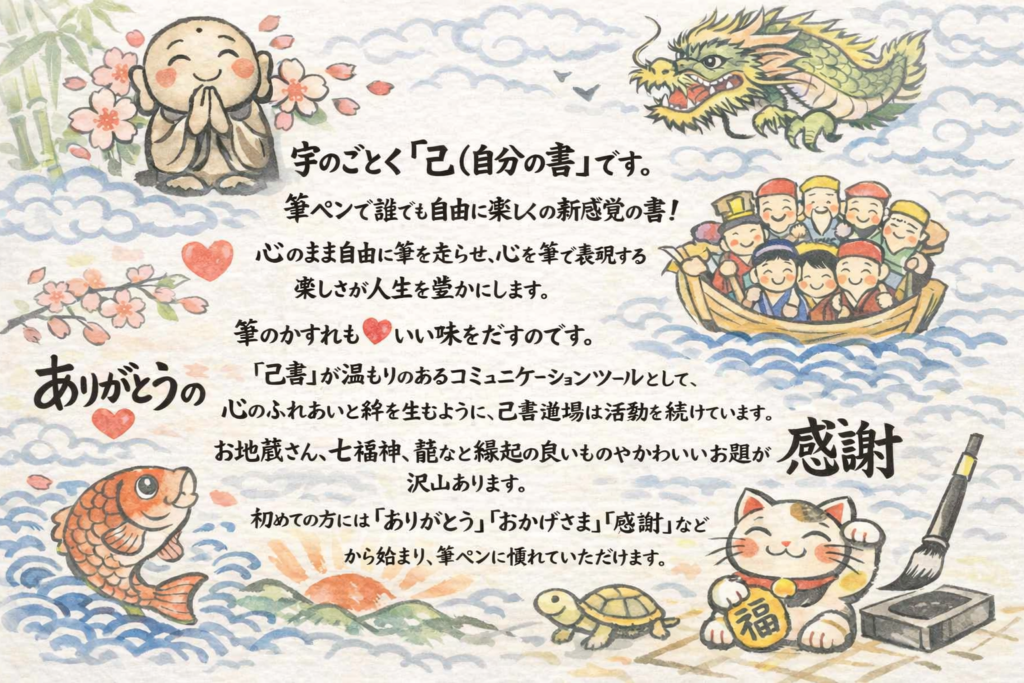 字のごとく「己(自分の書」です。
筆ペンで誰でも自由に楽しくの新感覚の書!
心のまま自由に筆を走らせ、心を筆で表現する
楽しさが人生を豊かにします。
筆のかすれも いい味をだすのです。
ありがとうの
「己書」が温もりのあるコミュニケーションツールとして、
心のふれあいと絆を生むように、己書道場は活動を続けています。
お地蔵さん、七福神、龍など縁起の良いものやかわいいお題が
沢山あります。
感謝
初めての方には「ありがとう」「おかげさま」「感謝」など
から始まり、筆ペンに慣れていただけます。
福